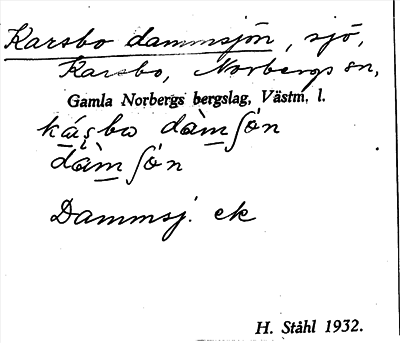 Karsbo dammsjön, sjö,
Karsbo, Norbergs sn,
Gamla Norbergs bergslag, Västm. l.
ká̱ʂbo dàm̱ʃón
dàm̱ʃón
Dammsj. ek
H. Ståhl 1932.